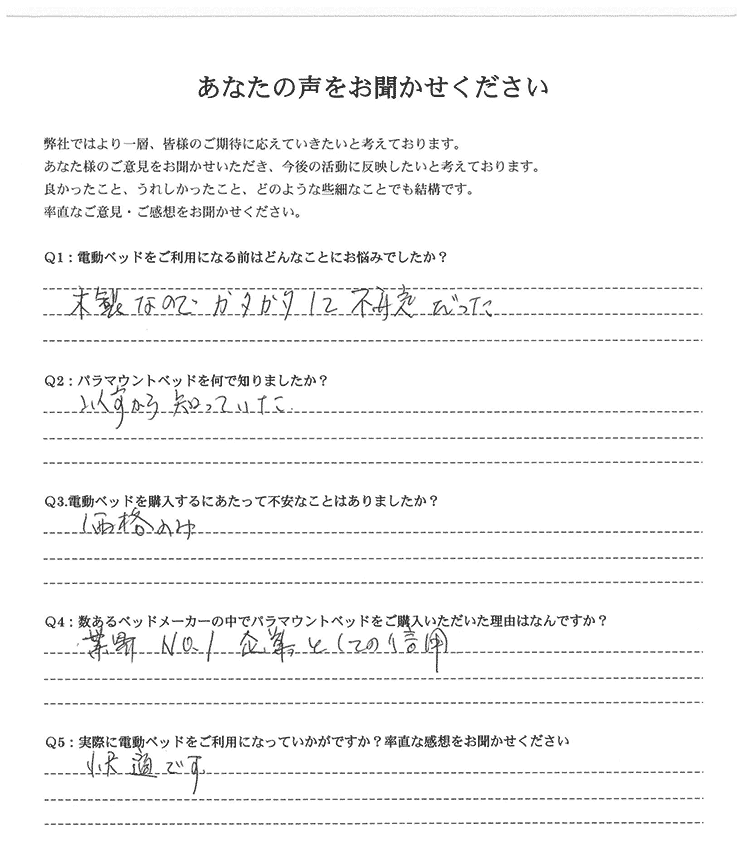 あなたの声をお聞かせください
弊社ではより一層、皆様のご期待に応えていきたいと考えております。
あなた様のご意見をお聞かせいただき、今後の活動に反映したいと考えております。
良かったこと、うれしかったこと、どのような些細なことでも結構です。
率直なご意見・ご感想をお聞かせください。
Q1：電動ベッドをご利用になる前はどんなことにお悩みでしたか？
木製なので ガタガタして 不安定 だった
Q2：パラマウントベッドを何で知りましたか？
以前から 知っていた
Q3.電動ベッドを購入するにあたって不安なことはありましたか？
価格のみ
Q4：数あるベッドメーカーの中でパラマウントベッドをご購入いただいた理由はなんですか？
業界 NO.1 企業としての信用
Q5：実際に電動ベッドをご利用になっていかがですか？率直な感想をお聞かせください
快適です